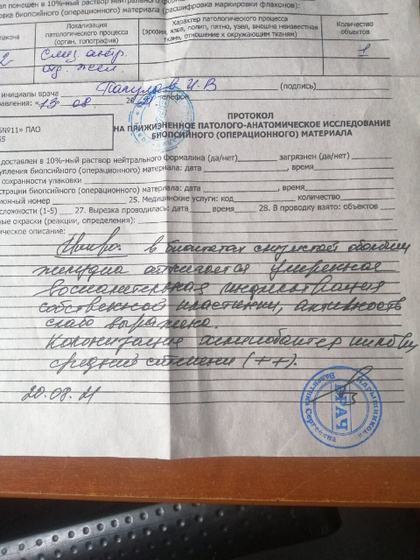 ал помещен в 10%-ный раствор нейтральной фор
биопсийного (операционного) материала (расшифровка маркировки флаконов):
Локализация
патологического процесса
(орган, топография)
Характер патологического процесса
ткань, отношение к окружающим тканям)
Количество
объектов
2
Слиз. антр.
отд. жел.
1
инициалы врача
И. В
(подпись)
13 08
телефон
№11» ПАО
ПРОТОКОЛ
НА ПРИЖИЗНЕННОЕ ПАТОЛОГО-АНАТОМИЧЕСКОЕ ИССЛЕДОВАНИЕ
БИОПСИЙНОГО (ОПЕРАЦИОННОГО) МАТЕРИАЛА
доставлен в 10%-ный раствор нейтрального формалина (да/нет) загрязнен (да/нет)
упления биопсийного (операционного) материала: дата время
сохранности упаковки
страции биопсийного (операционного) материала: дата время
ционный номер 25. Медицинские услуги: код количество
сложности (1-5) 27. Вырезка проводилась: дата время 28. В проводку взято: объектов
ые окраски (реакции, определения):
ическое описание:
в биоптатах слизистой оболочки
желудка отмечается умеренная
воспалительная инфильтрация
собственной пластинки, активность
слабо выражена.
Колонизация
средней степени (++).
20.08.21
ВРАЧ